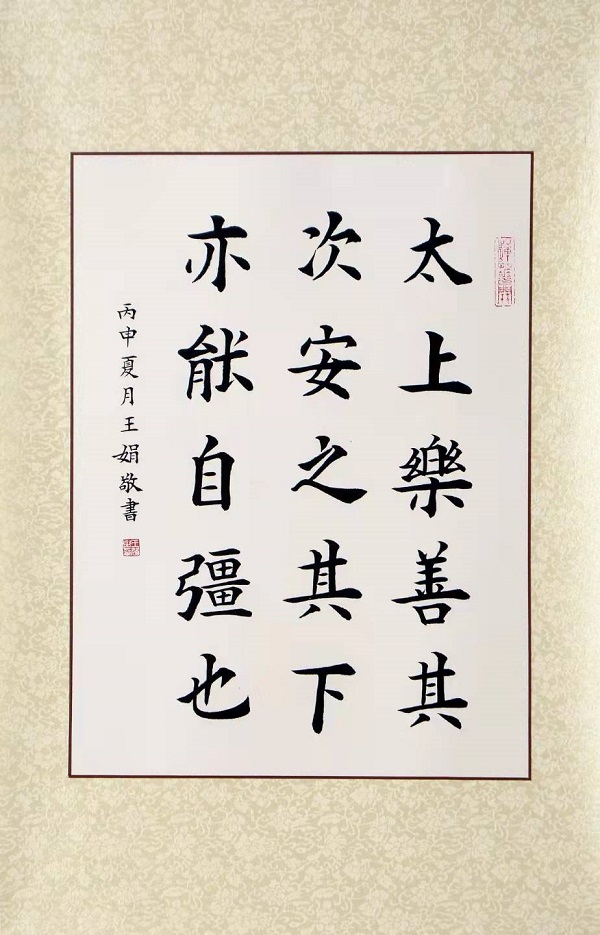 太上樂善其
次安之其下
亦能自彊也
丙申夏月王娟敬書